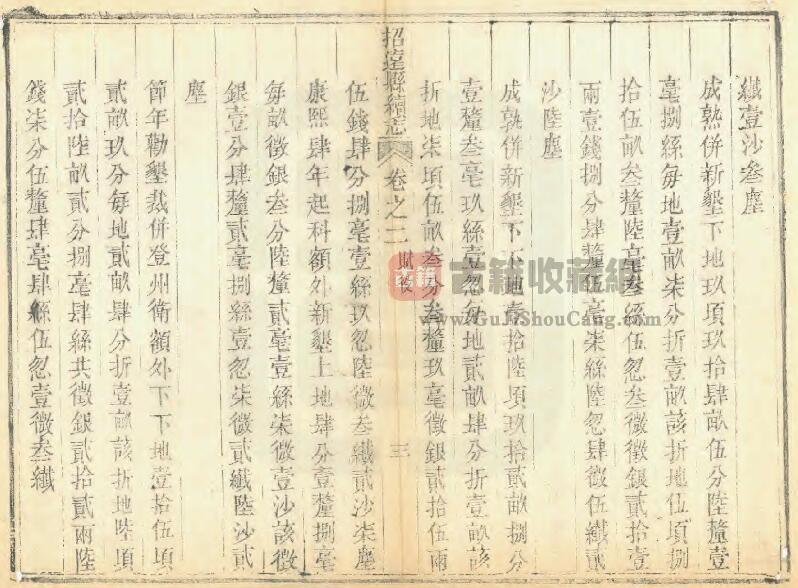 纖壹沙叁塵
成熟併新墾下地玖頃玖拾肆畝伍分陸釐壹
毫捌絲每地壹畝柒分折壹畝該折地伍頃捌
拾伍畝叁釐陸毫叁絲伍忽叁微徵銀貳拾壹
兩壹錢捌分肆釐伍毫柒絲陸忽肆微伍纖貳
沙陸塵
成熟併新墾下下地壹拾陸頃玖拾貳畝捌分
壹釐叁毫玖絲壹忽每地貳畝肆分折壹畝該
折地柒頃伍畝叁分叁釐玖毫徵銀貳拾伍兩
招遠縣續志 卷之二 賦役 三
伍錢肆分捌毫壹絲玖忽陸微叁纖貳沙柒塵
康熙肆年起科額外新墾上地肆分壹釐捌毫
每畝徵銀叁分陸釐貳毫壹絲柒微壹沙該徵
銀壹分肆釐貳毫捌絲壹忽柒微貳纖陸沙貳
塵
節年勸墾裁併登州衛額外下下地壹拾伍頃
貳畝玖分每地貳畝肆分折壹畝該折地陸頃
貳拾陸畝貳分捌毫肆絲共徵銀貳拾貳兩陸
錢柒分伍釐肆毫肆絲伍忽壹微叁纖
古籍
古籍收藏網
www.GuJiShouCang.com